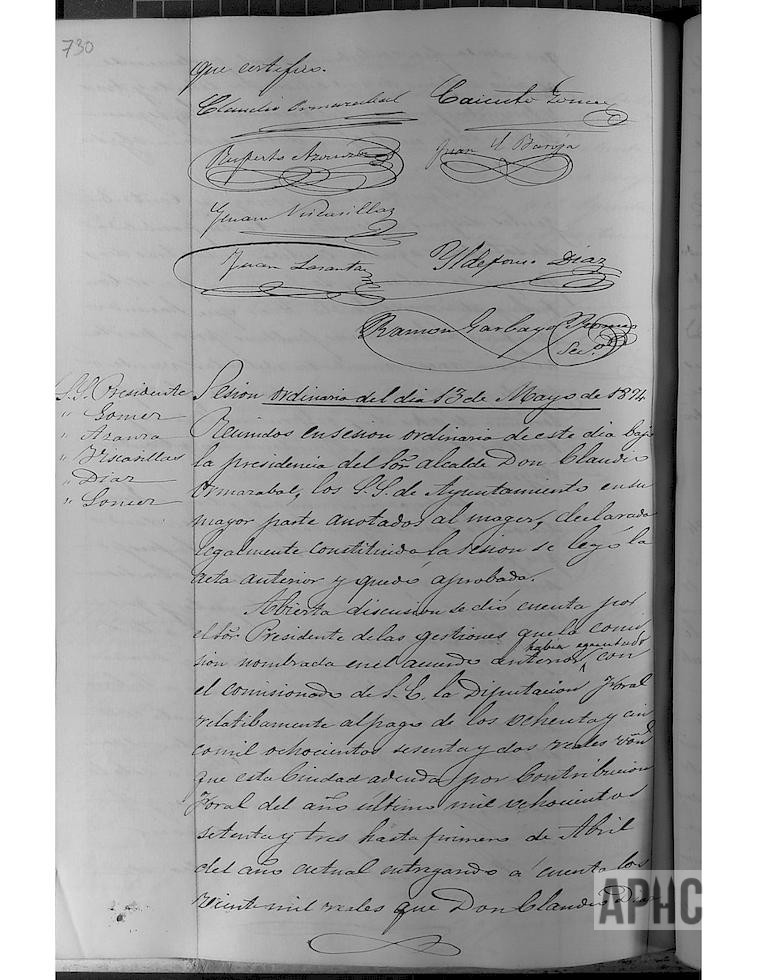 730
que certifico.
Claudio Armarabal Cacinto Gomez
Ruperto Azcarza Juan Y Barója
Juan Viscasillas
Juan Lasanta Yldefonso Diaz
Ramon Garbayo
Sec.º
S.S. Presidente
" Gomez
" Azanra
" Viscasillas
" Diaz
" Gomez
Sesion ordinaria del dia 13 de Mayo de 1874
Reunidos en sesion ordinaria de este dia bajo
la presidencia del Sor. alcalde Don Claudio
Armarabal, los S.S. de Ayuntamiento en su
mayor parte anotados al margen, declarada
legalmente constituida la sesion se leyó la
acta anterior y quedó aprobada.
Abierta discusion se dió cuenta por
el Sor. Presidente de las gestiones que la comi
sion nombrada en el acuerdo anterior haber egecutado con
el comisionado de S.E. la Diputacion Foral
relatibamente al pago de los ochenta y cin
co mil ochocientos sesenta y dos reales von
que esta Ciudad adeuda por Contribucion
Foral del año último mil ochocientos
setenta y tres hasta primero de Abril
del año actual entregando á cuenta los
veinte mil reales que Don Claudio Diaz
APHC